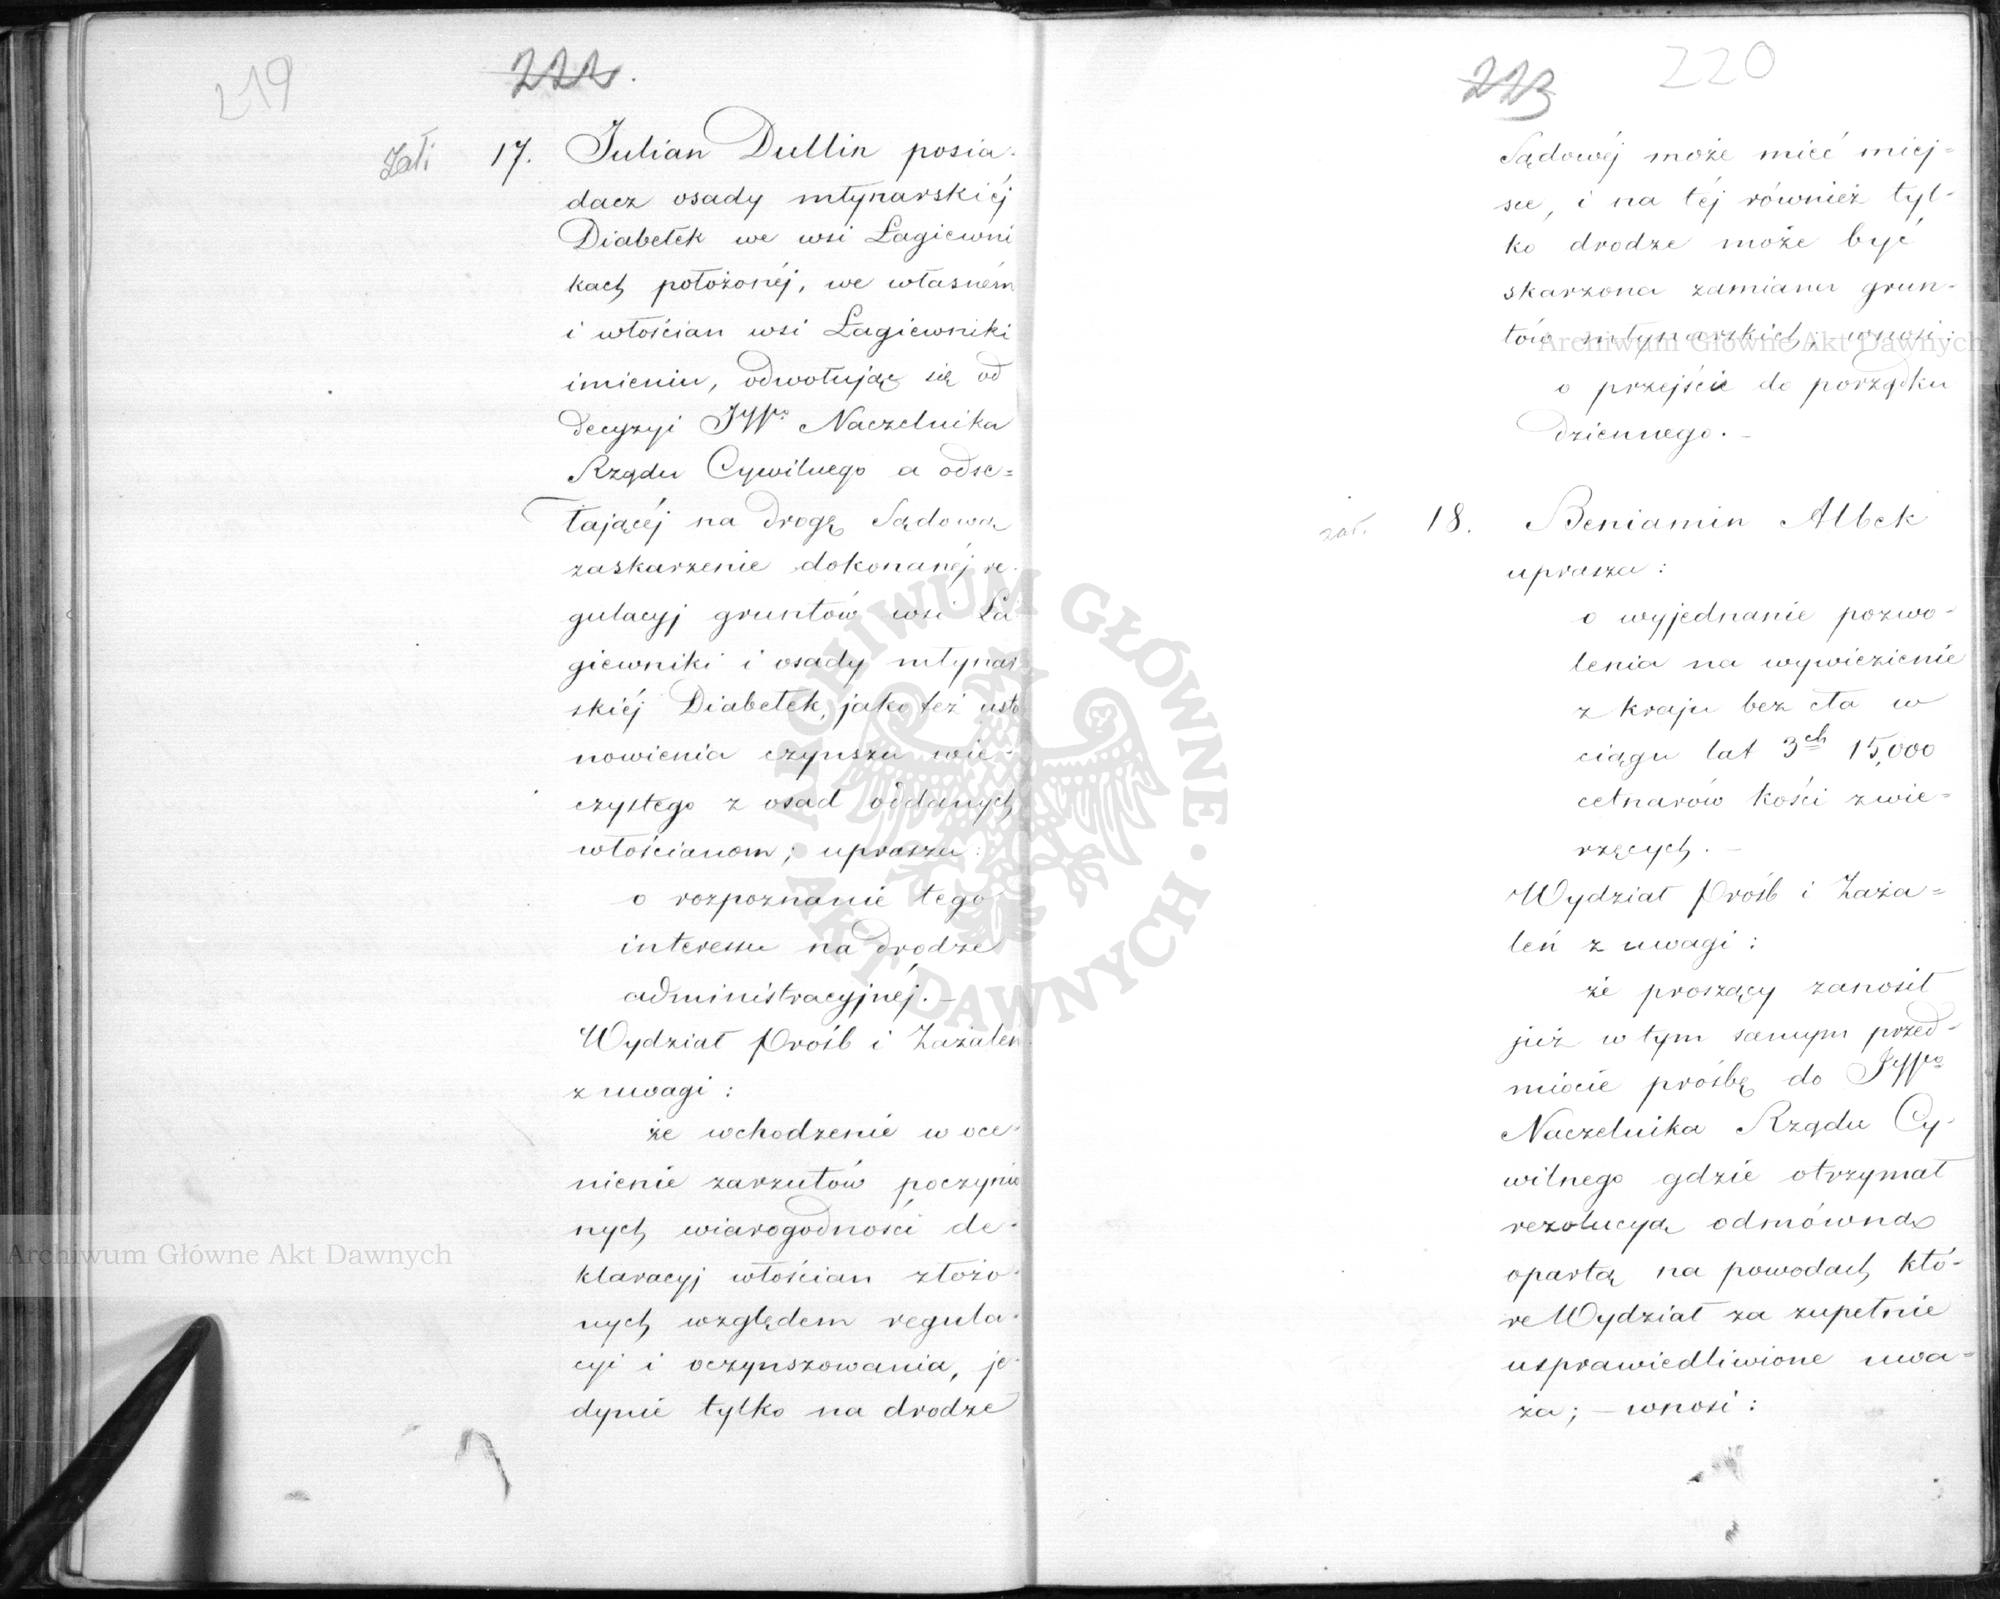 219
222.
Zał:
17. Julian Dullin posia-
dacz osady młynarskiéj
Diabełek we wsi Łagiewni
kach położonéj, we własném
i włościan wsi Łagiewniki
imieniu, odwołując się od
decyzyi JWo Naczelnika
Rządu Cywilnego a odse=
łającéj na drogę Sądową
zaskarzenie dokonanéj re-
gulacyj gruntów wsi Ła
giewniki i osady młynar
skiéj Diabełek, jako też usta
nowienia czynszu wie-
czystego z osad oddanych
włościanom; uprasza:
o rozpoznanie tego
interessu na drodze
administracyjnéj. –
Wydział Próśb i Zażaleń
z uwagi:
że wchodzenie w oce-
nienie zarzutów poczynio
nych wiarogodności de-
klaracyj włościan złożo-
nych względem regula-
cyi i oczynszowania, je-
dynie tylko na drodze
223
220
Sądowéj może mieć miej=
sce, i na téj również tyl-
ko drodze może być
skarzona zamiana grun-
tów młynarskich; wnosi:
o przejście do porządku
dziennego. –
zał.
18. Beniamin Albek
uprasza:
o wyjednanie pozwo-
lenia na wywiezienie
z kraju bez cła w
ciągu lat 3ch 15,000
cetnarów kości zwie-
rzęcych. –
Wydział Próśb i Zaża=
leń z uwagi:
że proszący zanosił
już w tym samym przed-
miocie prośbę do JWo
Naczelnika Rządu Cy-
wilnego gdzie otrzymał
rezolucyą odmówną
opartą na powodach, któ-
re Wydział za zupełnie
usprawiedliwione uwa=
ża; – wnosi:
Archiwum Główne Akt Dawnych
Archiwum Główne Akt Dawnych
ARCHIWUM GŁÓWNE · AKT DAWNYCH ·